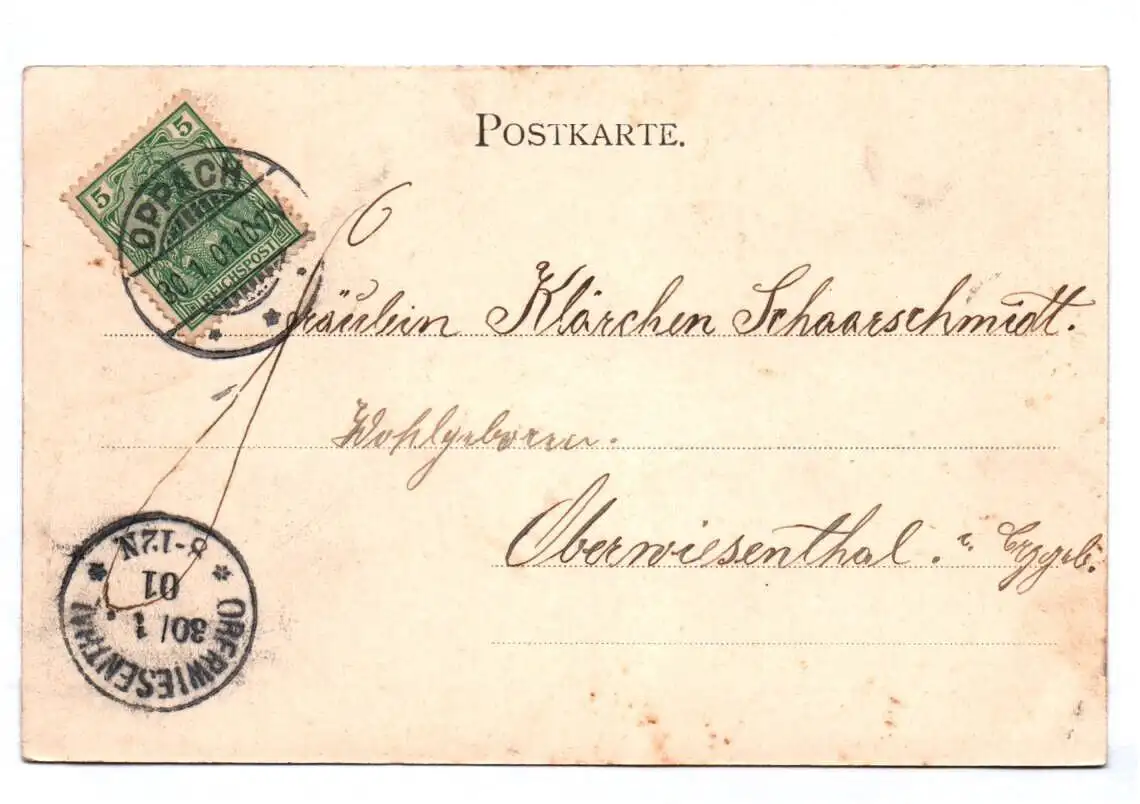 POSTKARTE.
5 5
REICHSPOST
OPPACH
30 1. 01. 10-
Fräulein Klärchen Schaarschmidt.
Wohlgeboren.
Oberwiesenthal. i. Erzgeb.
OBERWIESENTHAL
30/1
01
8-12N